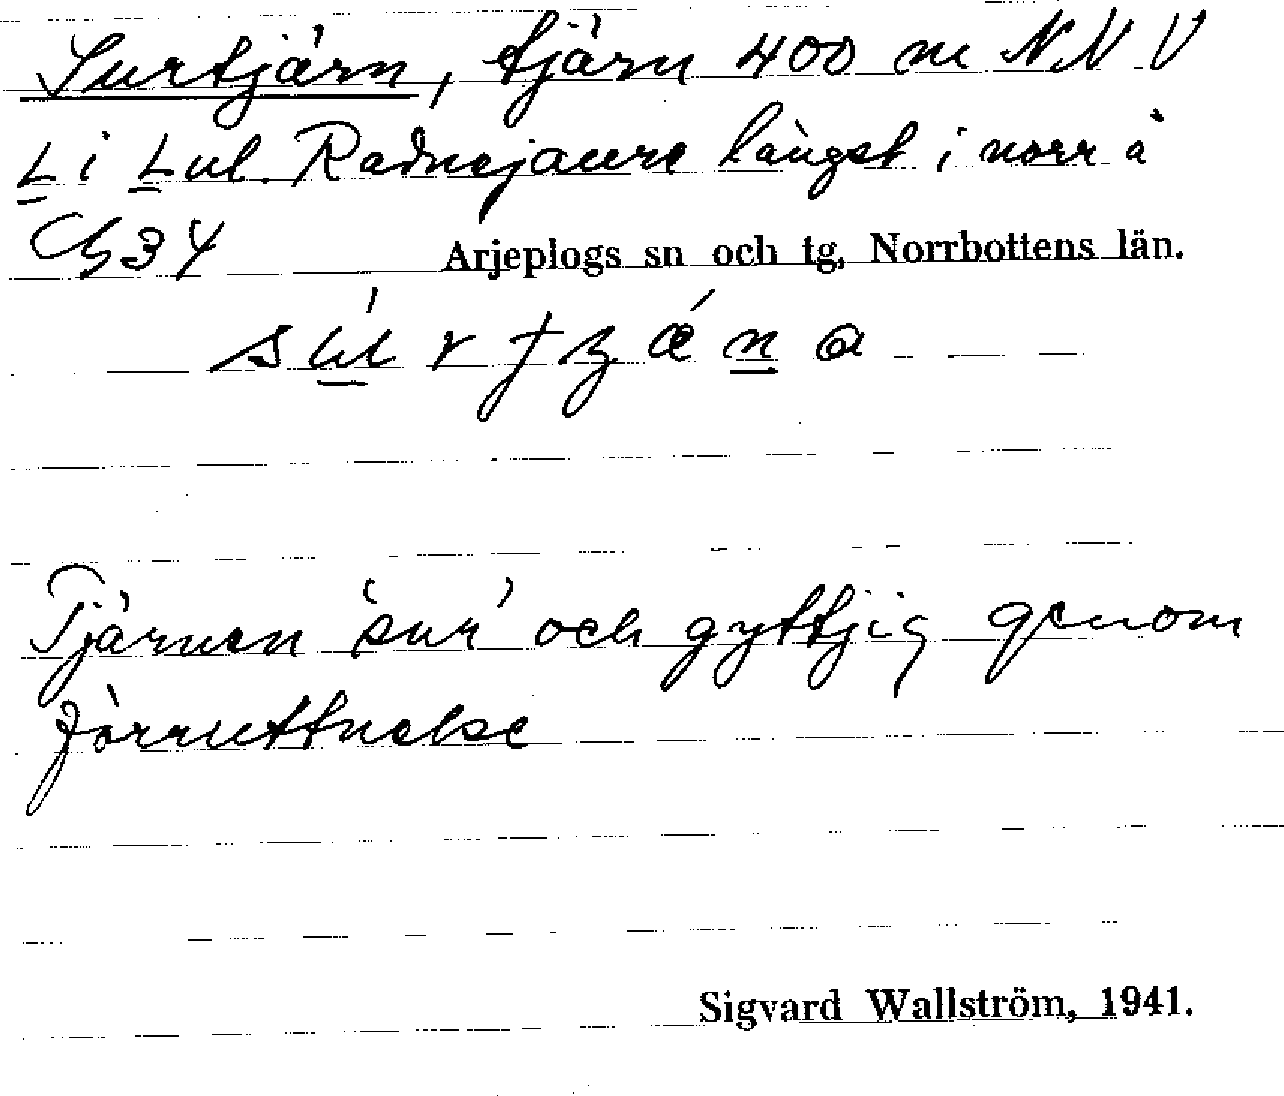 Surtjärn, tjärn 400 m NNV
L i Lul. Radnejaure längst i norr å
G34 Arjeplogs sn och tg, Norrbottens län.
Tjärnen 'sur' och gyttjig genom
förruttnelse
Sigvard Wallström, 1941.